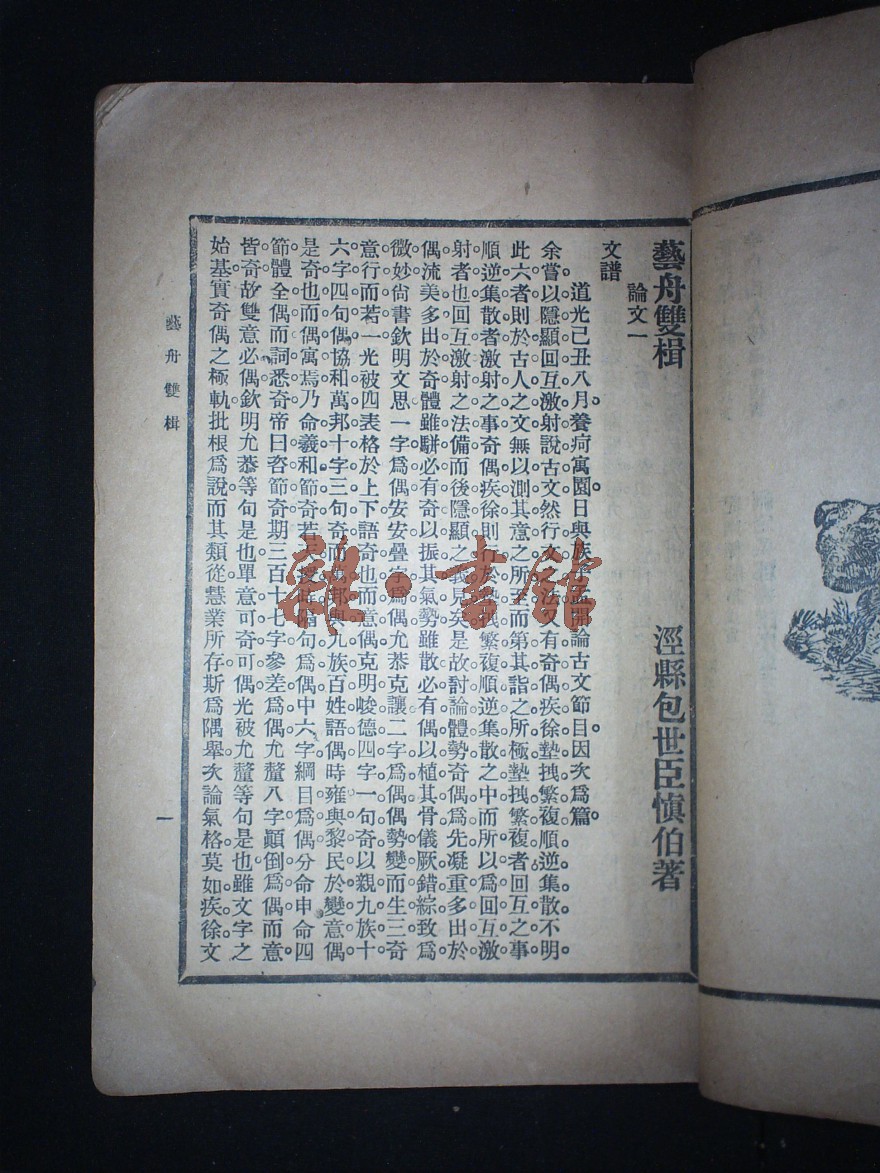 藝舟雙楫　涇縣包世臣慎伯著
論文一
文譜
道光己丑八月。養疴寓園。日與族子孟開論古文節目。因次爲篇。
余嘗以隱顯回互激射說古文。然行文之法。又有奇偶疾徐墊拽繁複順逆集散。不明
此六者。則於古人之文。無以測其意之所至。而第其詣之所極。墊拽繁複者。回互之事。
順逆集散者。激射之事。奇偶疾徐。則行於墊拽繁複順逆集散之中。而所以爲回互激
射者也。回互激射之法備。而後隱顯之義見矣。是故討論體勢。奇偶爲先。凝重多出於
偶。流美多出於奇。體雖駢。必有奇以振其氣。勢雖散。必有偶以植其骨。儀厥錯綜。致爲
微妙。尚書欽明文思一字爲偶。安安疊字爲偶。允恭克讓二字爲偶。偶勢變而生三。奇
意行而若一。光被四表。格於上下。語奇也。而意偶。克明峻德。四字一句奇。以親九族。十
六字四句偶。協和萬邦。十字三句奇。而萬邦與九族百姓語偶。時雍與黎民於變意偶。
是奇也。而偶寓焉。乃命羲和節奇。若天授時。隔句爲偶。中六字綱目爲偶。分命申命四
節。體全偶而詞悉奇。帝曰咨節奇。期三百十七字。參差爲偶。允釐八字。顛倒爲偶。而意
皆奇。故雙意必偶。欽明允恭等句是也。單意可奇可偶。光被允釐等句是也。雖文字之
始基。實奇偶之極軌。批根爲說。而其類從。慧業所存。斯爲隅舉。次論氣格。莫如疾徐。文
藝舟雙楫
一
雜·書館